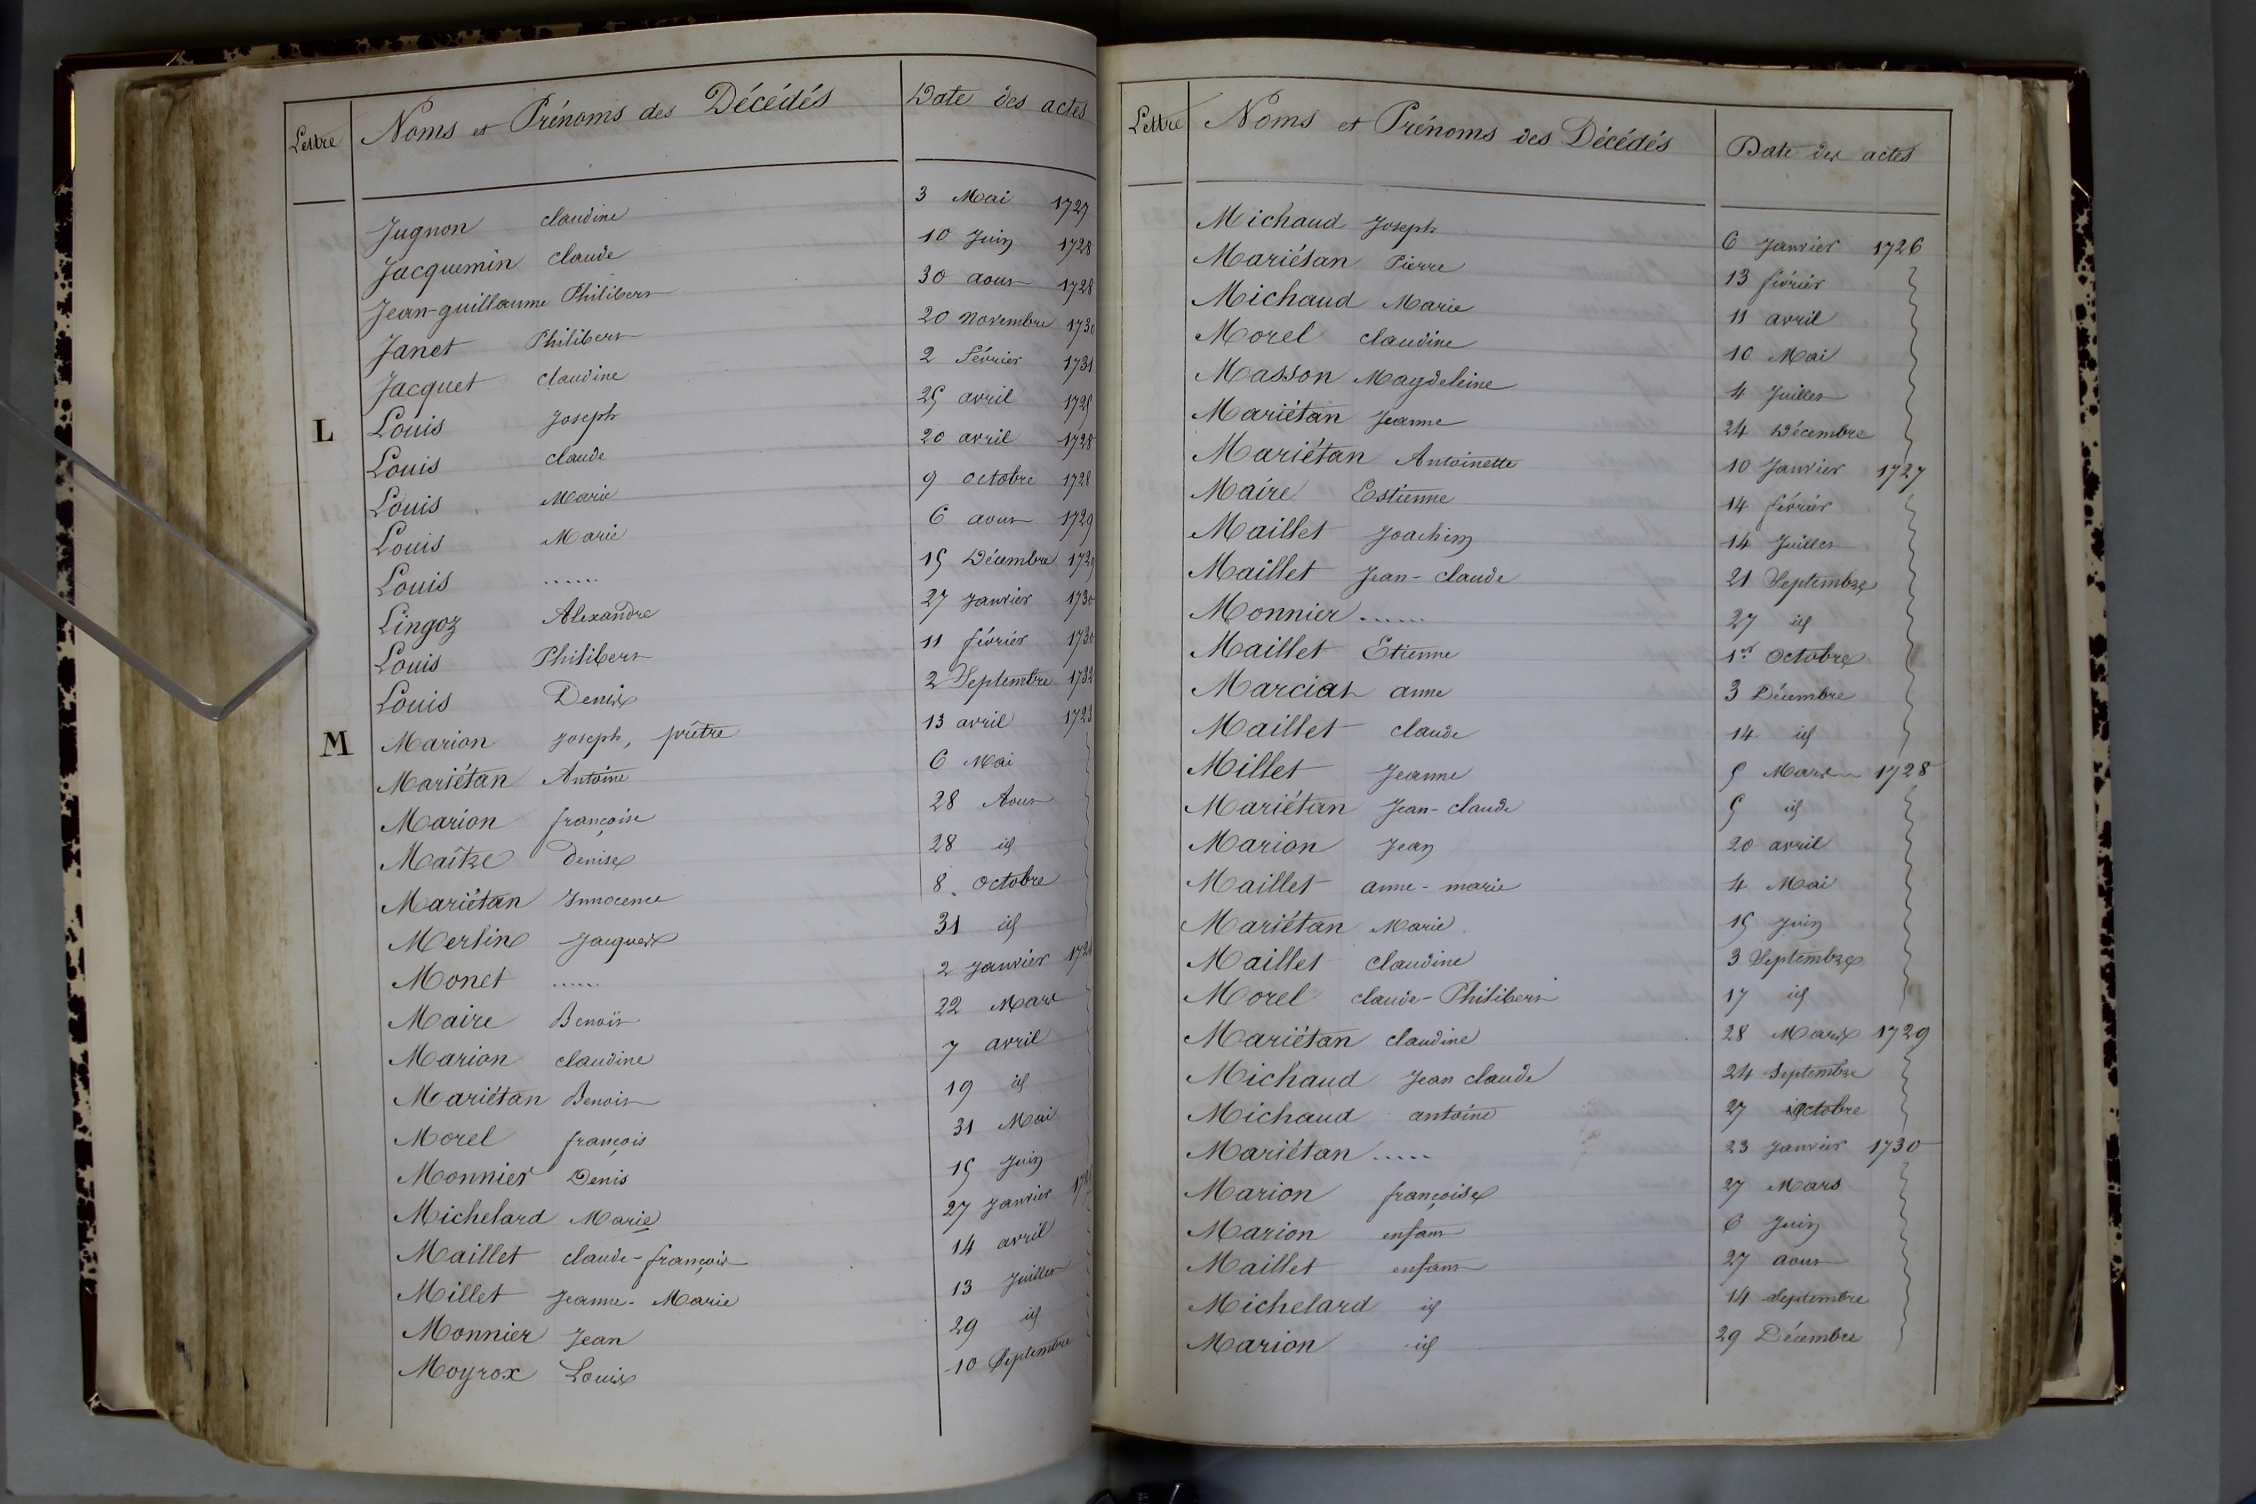 Lettre Noms et Prénoms des Décédés Date des actes
Jugnon claudine 3 Mai 1727
Jacquemin claude 10 Juin 1728
Jean-guillaume Philibert 30 aout 1728
Janet Philibert 20 novembre 1730
Jacquet claudine 2 février 1731
L Louis Joseph 25 avril 1725
Louis claude 20 avril 1728
Louis Marie 9 octobre 1728
Louis Marie 6 aout 1729
Louis ...... 15 Décembre 1729
Lingoz Alexandre 27 Janvier 1730
Louis Philibert 11 février 1730
Louis Denix 2 Septembre 1732
M Marion Joseph, prêtre 13 avril 1723
Mariétan Antoine 6 Mai
Marion françoise 28 Aout
Maître Denise 28 id
Mariétan Innocence 8. octobre
Merlin Jacques 31 id
Monet ...... 2 Janvier
Maire Benoit 22 Mars
Marion claudine 7 avril
Mariétan Benoit 19 id
Morel françois 31 Mai
Monnier Denis 15 Juin
Michelard Marie 27 Janvier
Maillet claude-françois 14 avril
Millet Jeanne-Marie 13 Juillet
Monnier Jean 29 id
Moyrox Louis 10 Septembre
Lettre Noms et Prénoms des Décédés Date des actes
Michaud Joseph 6 Janvier 1726
Mariétan Pierre 13 février
Michaud Marie 11 avril
Morel claudine 10 Mai
Masson Magdeleine 4 Juillet
Mariétan Jeanne 24 Décembre
Mariétan Antoinette 10 Janvier 1727
Maire Estienne 14 février
Maillet Joachim 14 Juillet
Maillet Jean-claude 21 Septembre
Monnier ...... 27 id
Maillet Étienne 1er octobre
Marciat anne 3 Décembre
Maillet claude 14 id
Millet Jeanne 5 Mars 1728
Mariétan Jean-claude 5 id
Marion Jean 20 avril
Maillet anne-marie 4 Mai
Mariétan Marie 15 Juin
Maillet claudine 3 Septembre
Morel claude-Philibert 17 id
Mariétan claudine 28 Mars 1729
Michaud Jean claude 24 Septembre
Michaud antoine 27 octobre
Mariétan ..... 23 Janvier 1730
Marion françoise 27 Mars
Marion enfant 6 Juin
Maillet enfant 27 aout
Michelard id 14 septembre
Marion id 29 Décembre